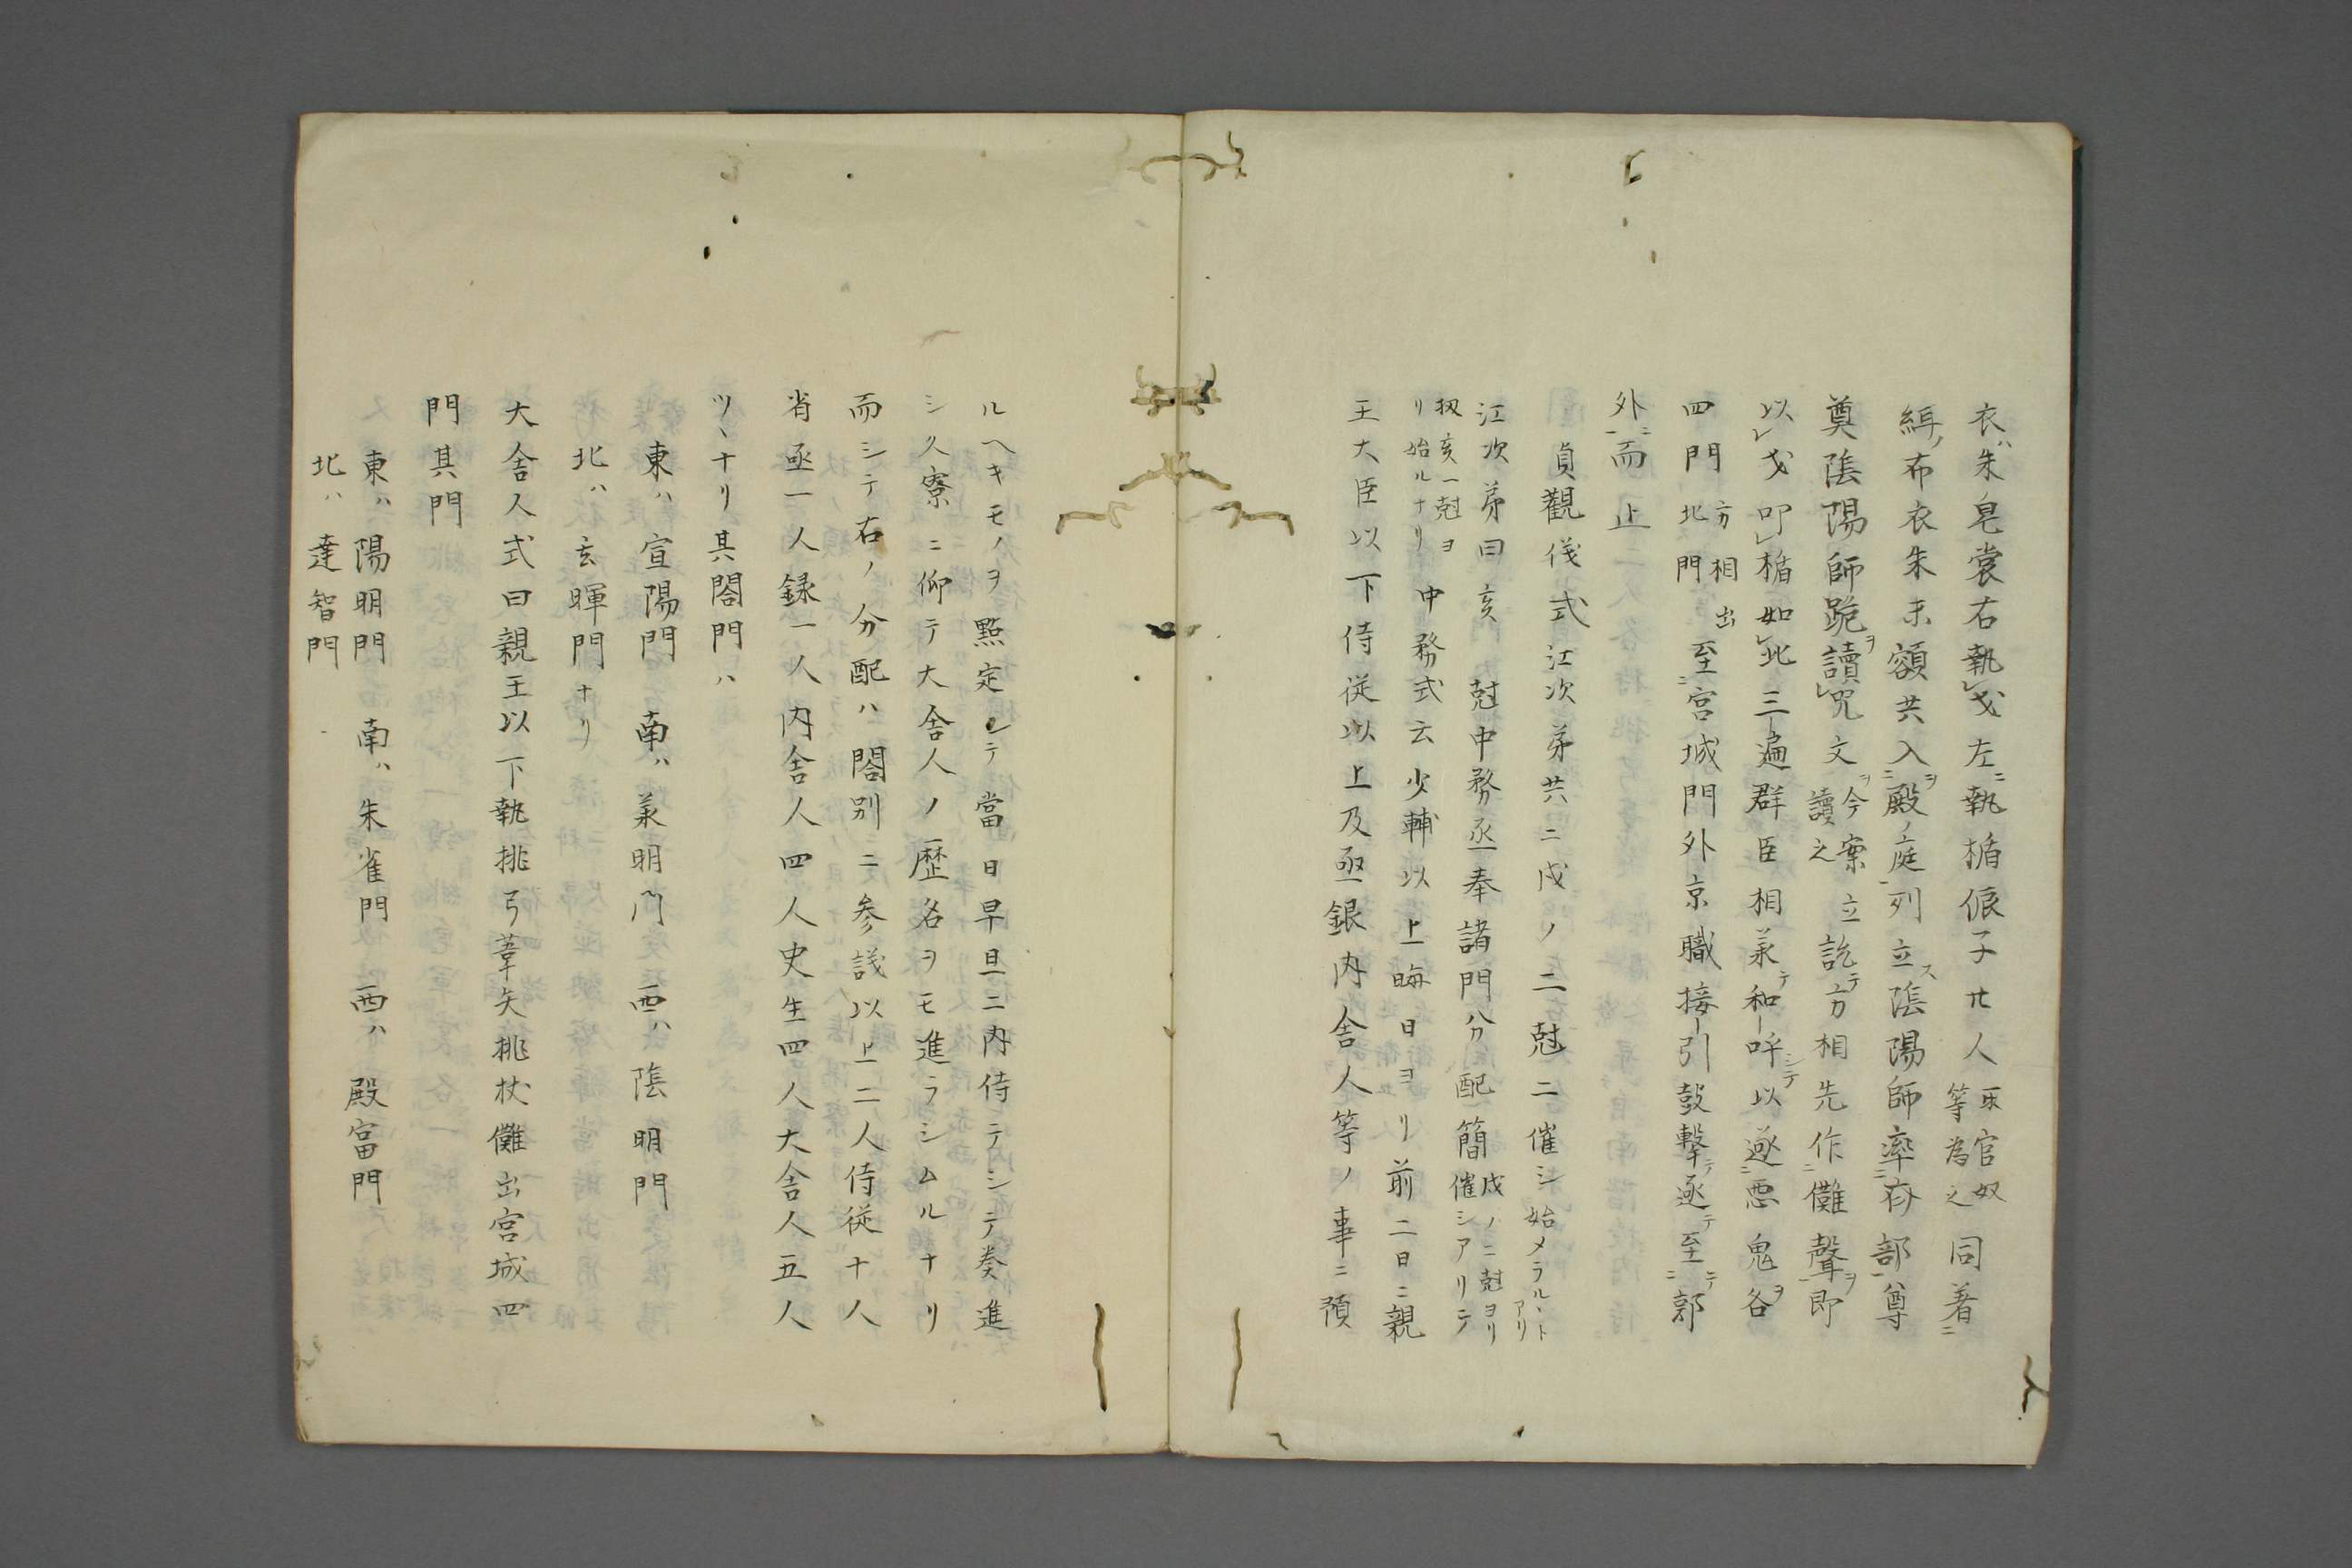 衣ハ朱皂裳右執レ戈左ニ執楯侲子廿人取官奴等為之同著ニ
緋ノ布衣朱末額共入ニ殿ノ庭ヲ一列立ス陰陽師率ニ斎部一尊
奠陰陽師跪讀レ呪文ヲ今案立讀之訖テ方相先作ニ儺聲ヲ一即
以レ戈叩レ楯如レ此三遍群臣相兼テ和呼シテ以逐ニ悪鬼ヲ各
四門方相出北門至ニ宮城門外京職接引鼓撃テ逐テ至ニ郭
外ニ一而止
貞觀儀式江次第共ニ戌ノ二尅ニ催シ始メラルヽトアリ
江次第曰亥一尅中務丞奉諸門分配簡戌ノ二尅ヨリ催シアリテ
扨亥一尅ヨリ始ルナリ中務式云少輔以上晦日ヨリ前二日ニ親
王大臣以下侍従以上及丞録内舎人等ノ事ニ預
ルヘキモノヲ點定シテ當日早旦ニ内侍テシテ奏進
シ久寮ニ仰テ大舎人ノ歴名ヲモ進ラシムルナリ
而シテ右ノ分配ハ閤別ニ参議以上二人侍従十人
省丞一人録一人内舎人四人史生四人大舎人五人
ツヽナリ其閤門ハ
東ハ宣陽門 南ハ兼明門 西ハ陰明門
北ハ玄暉門ナリ
大舎人式曰親王以下執桃弓葦矢桃杖儺出宮城四
門其門
東ハ陽明門 南ハ朱雀門 西ハ殷富門
北ハ達智門